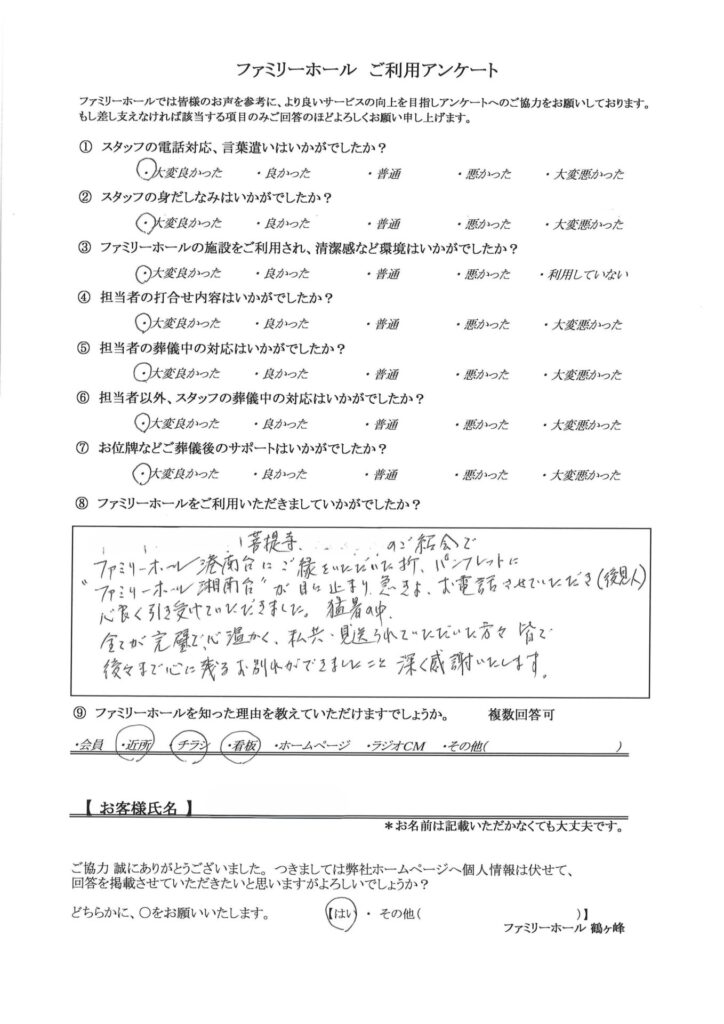 ファミリーホール ご利用アンケート
ファミリーホールでは皆様のお声を参考に、より良いサービスの向上を目指しアンケートへのご協力をお願いしております。
もし差し支えなければ該当する項目のみご回答のほどよろしくお願い申し上げます。
① スタッフの電話対応、言葉遣いはいかがでしたか？
・大変良かった ・良かった ・普通 ・悪かった ・大変悪かった
② スタッフの身だしなみはいかがでしたか？
・大変良かった ・良かった ・普通 ・悪かった ・大変悪かった
③ ファミリーホールの施設をご利用され、清潔感など環境はいかがでしたか？
・大変良かった ・良かった ・普通 ・悪かった ・利用していない
④ 担当者の打合せ内容はいかがでしたか？
・大変良かった ・良かった ・普通 ・悪かった ・大変悪かった
⑤ 担当者の葬儀中の対応はいかがでしたか？
・大変良かった ・良かった ・普通 ・悪かった ・大変悪かった
⑥ 担当者以外、スタッフの葬儀中の対応はいかがでしたか？
・大変良かった ・良かった ・普通 ・悪かった ・大変悪かった
⑦ お位牌などご葬儀後のサポートはいかがでしたか？
・大変良かった ・良かった ・普通 ・悪かった ・大変悪かった
⑧ ファミリーホールをご利用いただきましていかがでしたか？
菩提寺 のご紹介で
ファミリーホール港南台にご縁をいただいた折、パンフレットに
"ファミリーホール湘南台"が目に止まり、急きょ、お電話させていただき(後見人)
心良く引き受けていただきました。猛暑の中、
全てが完璧で、心温かく、私共・見送られていただいた方々皆で
後々まで心に残るお別れができましたこと深く感謝いたします。
⑨ ファミリーホールを知った理由を教えていただけますでしょうか。 複数回答可
・会員 ・近所 ・チラシ ・看板 ・ホームページ ・ラジオCM ・その他( )
【 お客様氏名 】
＊お名前は記載いただかなくても大丈夫です。
ご協力 誠にありがとうございました。つきましては弊社ホームページへ個人情報は伏せて、
回答を掲載させていただきたいと思いますがよろしいでしょうか？
どちらかに、〇をお願いいたします。 【はい ・ その他( )】
ファミリーホール 鶴ヶ峰